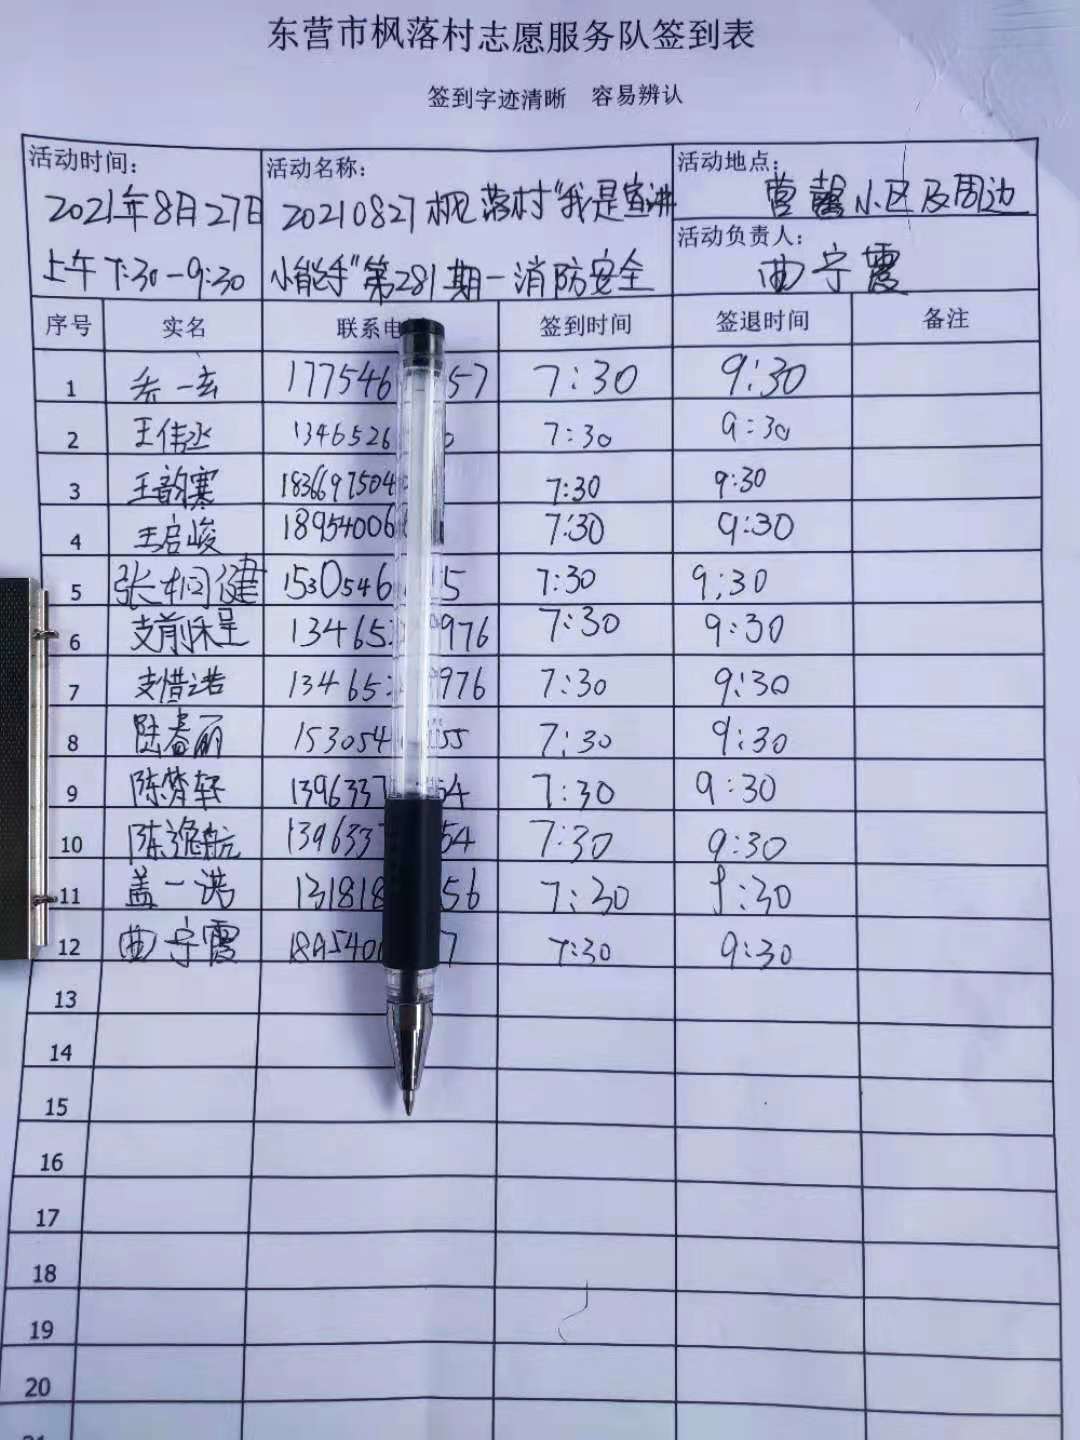 东营市枫落村志愿服务队签到表
签到字迹清晰 容易辨认
活动时间:
2021年8月27日
上午7:30-9:30
活动名称:
20210827枫落村"我是宣讲
小能手"第281期-消防安全
活动地点:
小区及周边
活动负责人:
曲宁霞
序号 实名 联系电 签到时间 签退时间 备注
1 乔一 177546 57 7:30 9:30
2 王伟丞 1346526 7:30 9:30
3 王韵寒 1836697504 7:30 9:30
4 王启峻 18954006 7:30 9:30
5 张桐健 1530546 5 7:30 9:30
6 支前程 13465 976 7:30 9:30
7 支惜诺 13465 976 7:30 9:30
8 陆春丽 153054 55 7:30 9:30
9 陈梦轩 1396337 54 7:30 9:30
10 陈逸航 139633 54 7:30 9:30
11 盖一诺 131818 56 7:30 9:30
12 曲宁霞 1895400 7 7:30 9:30
13
14
15
16
17
18
19
20